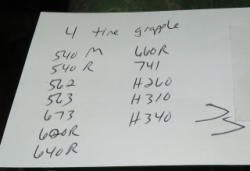 4 tine grapple
540 M 660R
540 R 741
562 H260
563 H310
673 H340
620R
640R